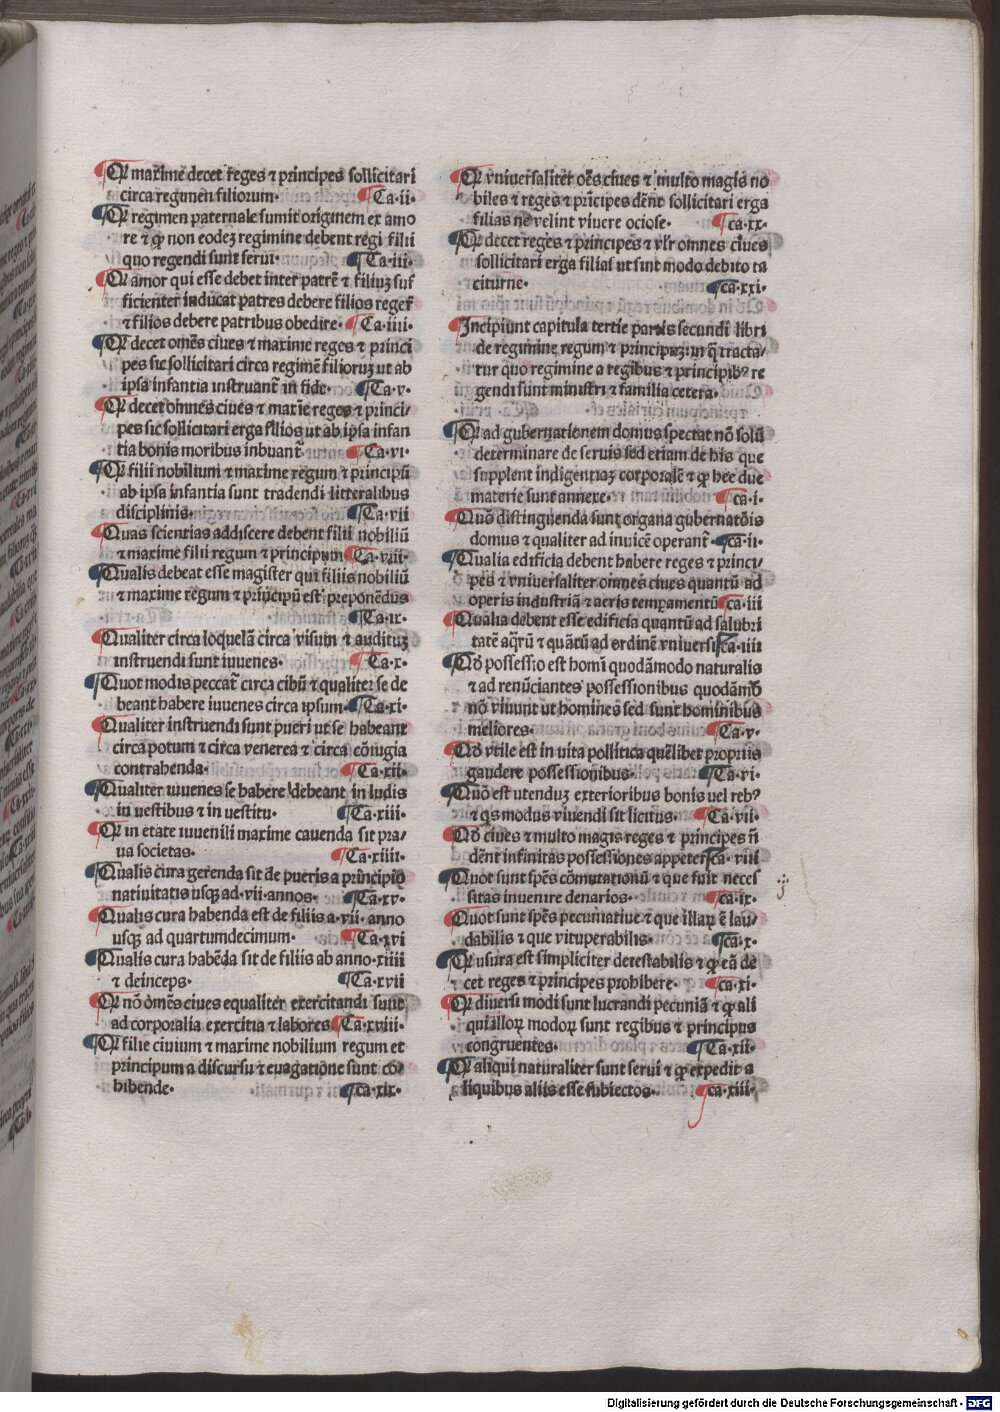 Qꝙ maxime decet reges ⁊ principes sollicitari
circa regimen filiorum· Ca·ii·
Qꝙ regimen paternale sumit originem ex amo
re ⁊ ꝙ non eodeʒ regimine debent regi filii
quo regendi sunt serui· Ca·iii·
Qꝙ amor qui esse debet inter patrē ⁊ filiuʒ suf
ficienter inducat patres debere filios reger̄
⁊ filios debere patribus obedire· Ca·iiii·
Qꝙ decet omēs ciues ⁊ maxime reges ⁊ princi
pes sic sollicitari circa regimē filioruʒ ut ab
ipsa infantia instruant̄ in fide· Ca·v·
Qꝙ decet omnes ciues ⁊ maxīe reges ⁊ princi/
pes sic sollicitari erga filios ut ab ipsa infan
tia bonis moribus inbuant̄ Ca·vi·
Qꝙ filii nobilium ⁊ maxime regum ⁊ principū
ab ipsa infantia sunt tradendi litteralibus
disciplinis· Ca·vii
Quas scientias addiscere debent filii nobiliū
⁊ maxime filii regum ⁊ principum Ca·viii·
Qualis debeat esse magister qui filiis nobiliū
⁊ maxime regum ⁊ principū est preponēdus
Ca·ix·
Qualiter circa loquelā circa visum ⁊ audituʒ
instruendi sunt iuuenes· Ca·x·
Quot modis peccat̄ circa cibū ⁊ qualiter se de
beant habere iuuenes circa ipsum· Ca·xi·
Qualiter instruendi sunt pueri ut se habeant
circa potum ⁊ circa venerea ⁊ circa cōiugia
contrahenda· Ca·xii·
Qualiter iuuenes se habere debeant in ludis
in gestibus ⁊ in vestitu· Ca·xiii·
Qꝙ in etate iuuenili maxime cauenda sit pra/
ua societas· Ca·xiiii·
Qualis cura gerenda sit de pueris a principio
natiuitatis usqꝫ ad·vii·annos· Ca·xv·
Qualis cura habenda est de filiis a·vii·anno
usqꝫ ad quartumdecimum· Ca·xvi
Qualis cura habēda sit de filiis ab anno·xiiii
⁊ deinceps· Ca·xvii
Qꝙ nō omēs ciues equaliter exercitandi sunt
ad corporalia exercitia ⁊ labores Ca·xviii·
Qꝙ filie ciuium ⁊ maxime nobilium regum et
principum a discursu ⁊ euagatione sunt co/
hibende· ca·xix·
Qꝙ vniuersaliter oēs ciues ⁊ multo magis no
biles ⁊ reges ⁊ prīcipes dēnt sollicitari erga
filias ne velint viuere ociose· ca·xx·
Qꝙ decet reges ⁊ principes ⁊ vlr̄ omnes ciues
sollicitari erga filias ut sint modo debito ta
citurne· ca·xxi·
Incipiunt capitula tertie partis secundi libri
de regimine regum ⁊ principuʒ: in q̄ tracta/
tur quo regimine a regibus ⁊ principibꝰ re
gendi sunt ministri ⁊ familia cetera·
Qꝙ ad gubernationem domus spectat nō solū
determinare de seruis sed etiam de his que
supplent indigentiaʒ corporalē ⁊ ꝙ hec due
materie sunt annexe· ca·i·
Quō distinguenda sunt organa gubernatōis
domus ⁊ qualiter ad inuicē operant̄· ca·ii·
Qualia edificia debent habere reges ⁊ princi/
pes ⁊ vniuersaliter omnes ciues quantū ad
operis industriā ⁊ aeris tempamentū ca·iii
Qualia debent esse edificia quantū ad salubri
tatē aq̄rū ⁊ quātū ad ordinē vniuersi ca·iiii
Qō possessio est homī quodāmodo naturalis
⁊ ad renūciantes possessionibus quodāmō
nō viuunt ut homines sed sunt hominibus
meliores· Ca·v·
Qō vtile est in uita pollitica quēlibet propriis
gaudere possessionibus· Ca·vi·
Quō est utenduʒ exterioribus bonis uel rebꝰ
⁊ qs modus viuendi sit licitus· Ca·vii·
Qō ciues ⁊ multo magis reges ⁊ principes n̄
dēnt infinitas possessiones appeter̄ ca·viii
Quot sunt spēs cōmutationū ⁊ que fuit neces
sitas inuenire denarios· ca·ix·
Quot sunt spēs pecuniatiue ⁊ que illaꝝ ē lau/
dabilis ⁊ que vituperabilis· ca·x·
Qꝙ usura est simpliciter detestabilis ⁊ ꝙ eā de
cet reges ⁊ principes prohibere· ca·xi·
Qꝙ diuersi modi sunt lucrandi pecuniā ⁊ ꝙ ali
qui illoꝝ modoꝝ sunt regibus ⁊ principus
congruentes· Ca·xii·
Qꝙ aliqui naturaliter sunt serui ⁊ ꝙ expedit a
liquibus aliis esse subiectos· ca·xiii·
Digitalisierung gefördert durch die Deutsche Forschungsgemeinschaft - DFG